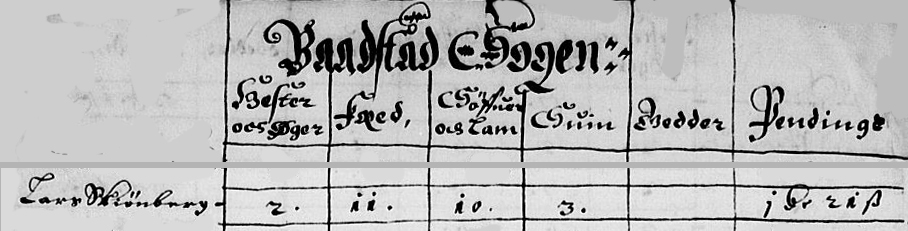 Baadstad Sogen
Hester och Øger Fæed, Söffuer och Lam Suin Vedder Pendinge
Lars Skiönberg. 2. ii. i0. 3. j dr 2i ß